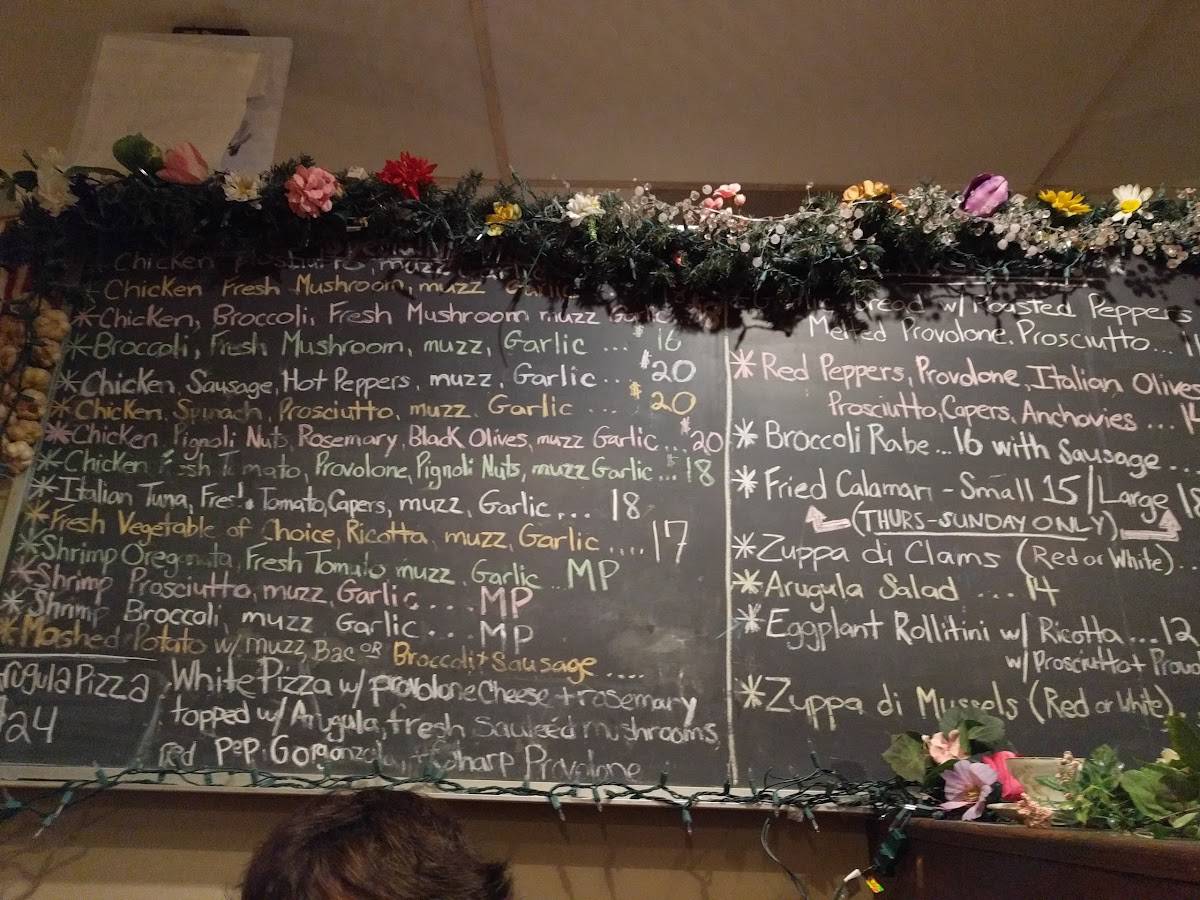 Chicken Prosciutto, muzz, Garlic
Chicken Fresh Mushroom, muzz Garlic
*Chicken, Broccoli, Fresh Mushroom muzz Garlic
*Broccoli, Fresh Mushroom, muzz, Garlic ... $16
*Chicken, Sausage, Hot Peppers, muzz, Garlic... $20
*Chicken, Spinach, Prosciutto, muzz Garlic ... $20
*Chicken Pignoli Nuts Rosemary, Black Olives, muzz Garlic... $20
*Chicken Fresh Tomato, Provolone, Pignoli Nuts, muzz Garlic... $18
*Italian Tuna, Fresh Tomato, Capers, muzz, Garlic... 18
*Fresh Vegetable of Choice, Ricotta muzz, Garlic .... 17
*Shrimp Oreganata, Fresh Tomato muzz, Garlic... MP
*Shrimp Prosciutto, muzz, Garlic.... MP
*Shrimp Broccoli, muzz Garlic... MP
*Mashed Potato w/ muzz Bac OR Broccoli + Sausage ....
Arugula Pizza
$24
White Pizza w/ provolone cheese + rosemary
topped w/ Arugula, fresh Sauteéd mushrooms,
red Pep, Gorgonzola, + Sharp Provolone
Bread w/ Roasted Peppers
Melted Provolone, Prosciutto...
*Red Peppers, Provolone, Italian Olives
Prosciutto, Capers, Anchovies....
*Broccoli Rabe...16 with Sausage...
*Fried Calamari - Small 15 / Large
(THURS-SUNDAY ONLY)
*Zuppa di Clams (Red or White)..
*Arugula Salad .... 14
*Eggplant Rollitini w/ Ricotta...12
w/ Prosciutto +
*Zuppa di Mussels (Red or White).